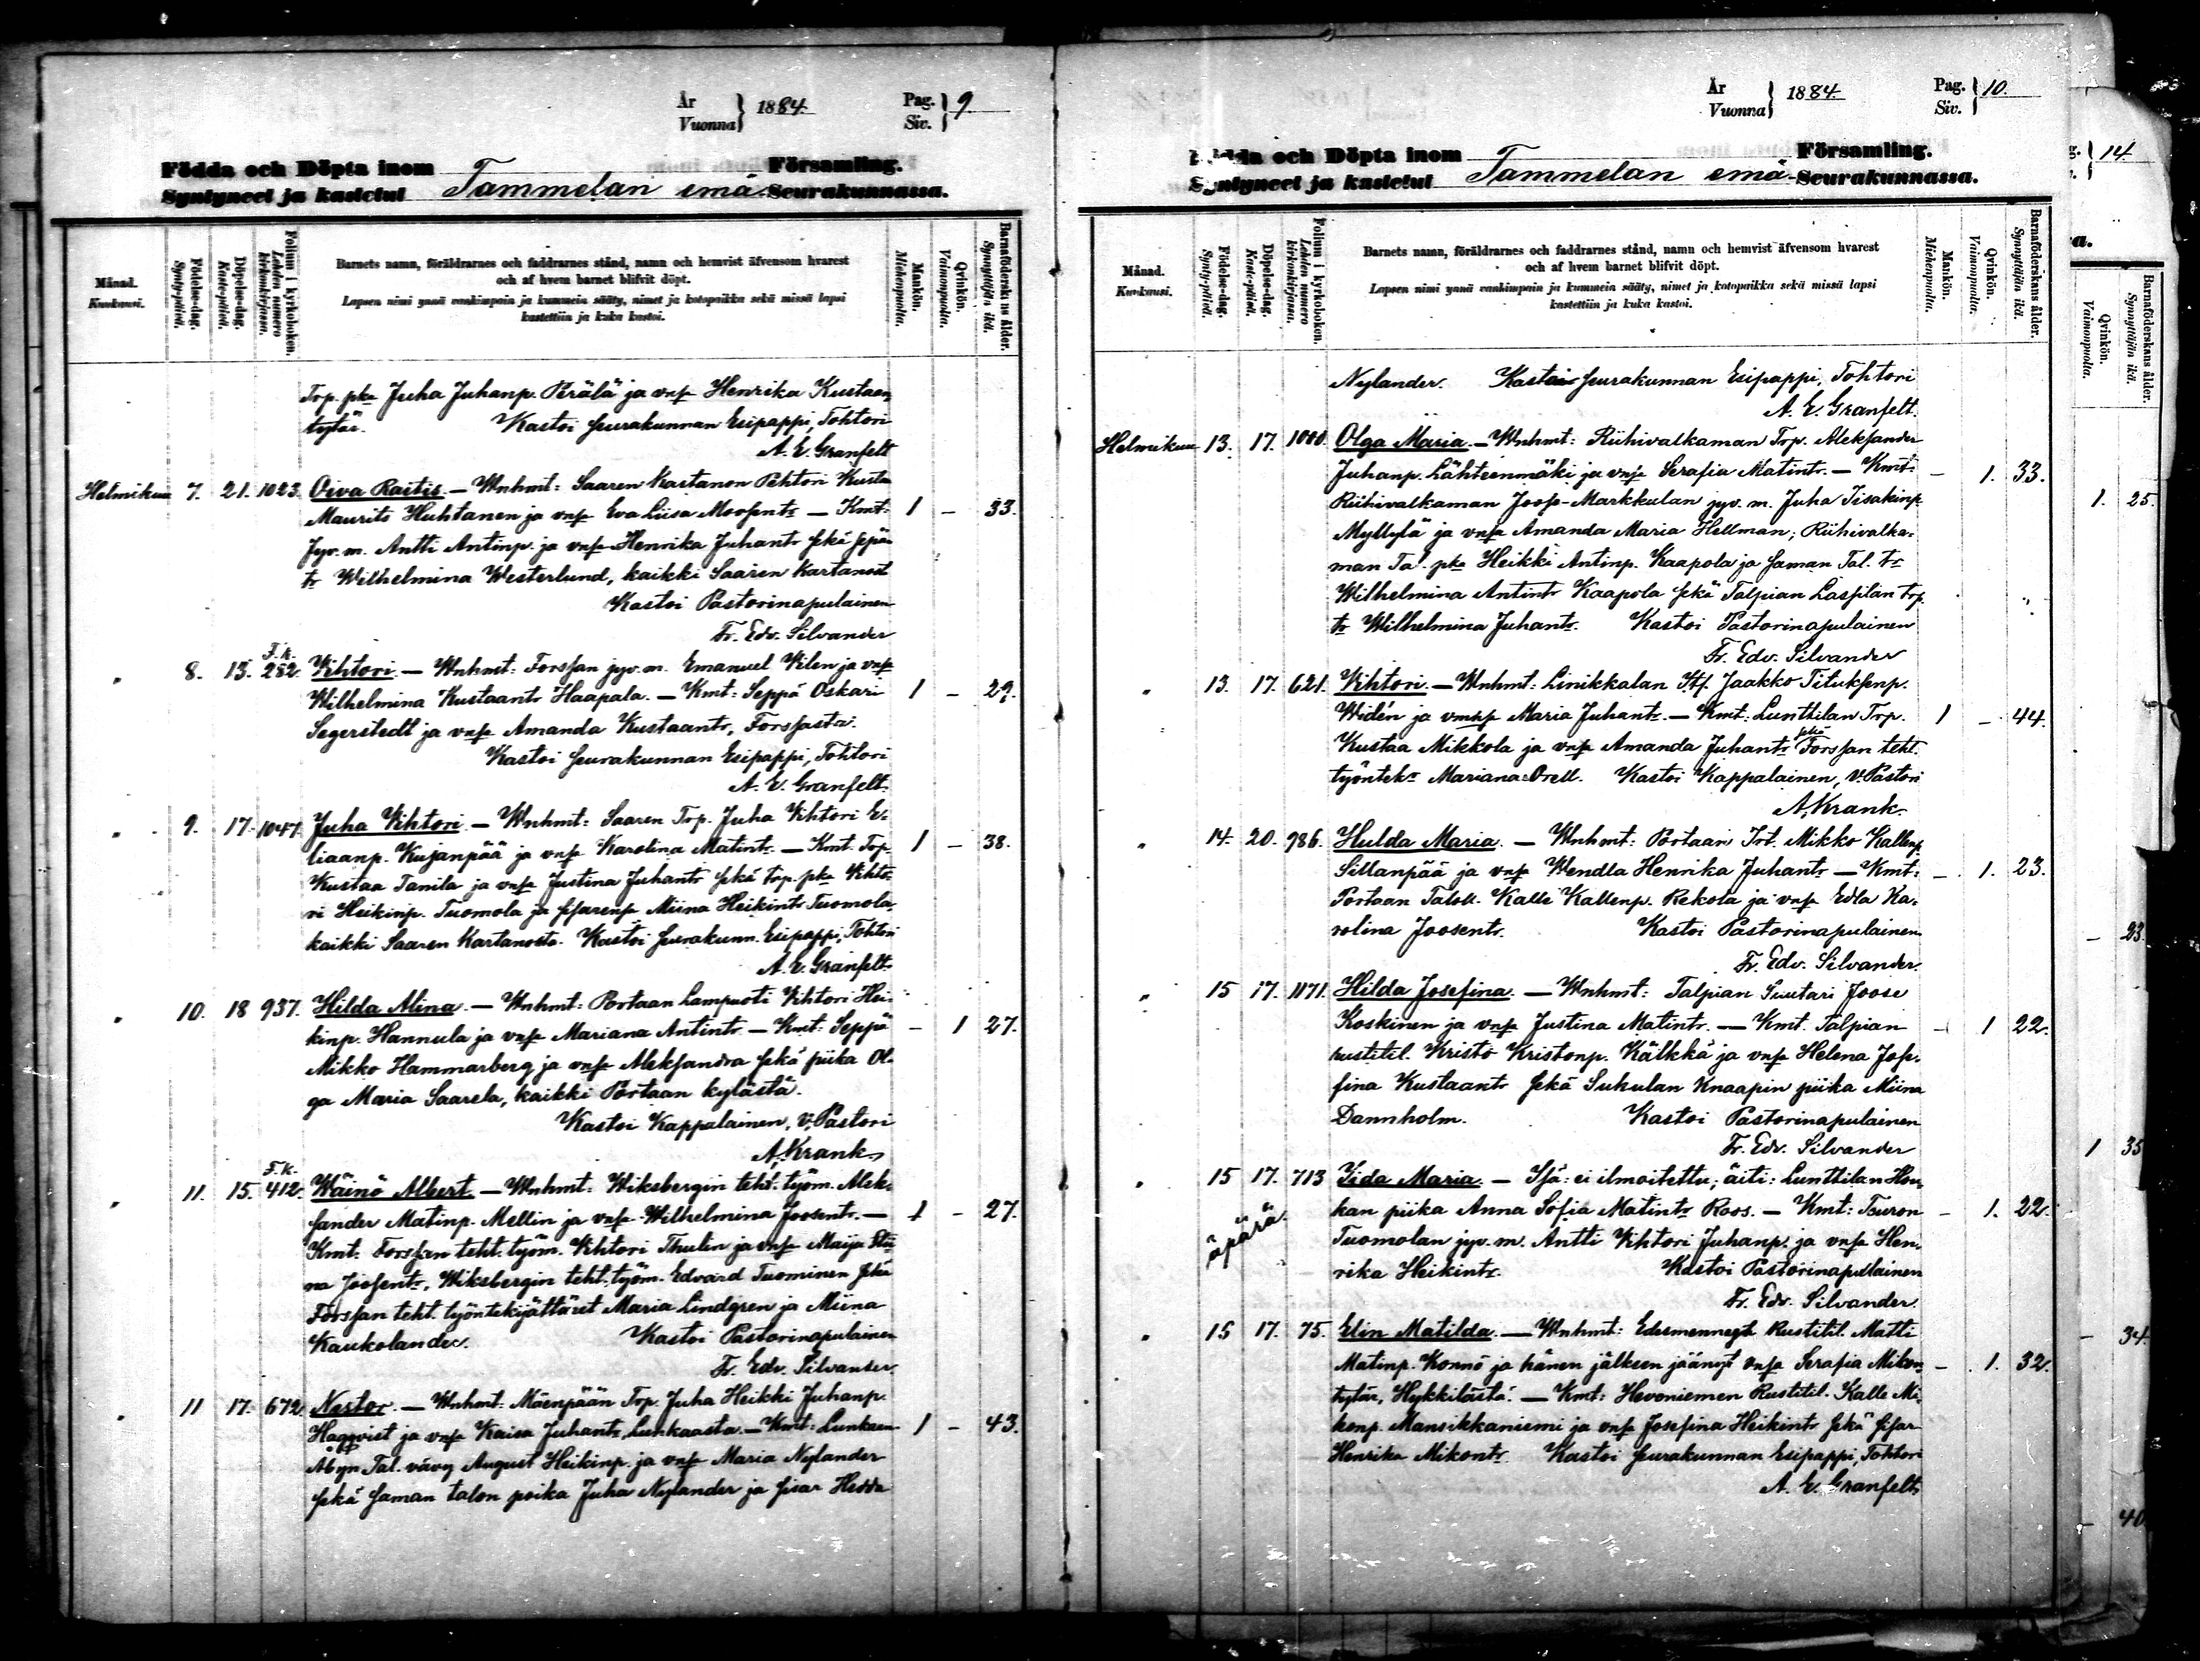 År
Vuonna
1884.
Pag.
Siv.
9.
Födda och Döpta inom Församling.
Syntyneet ja kastetut Tammelan emä Seurakunnassa.
Månad.
Kuukausi.
Födelse-dag.
Synty-päivä.
Döpelse-dag.
Kaste-päivä.
Folium i kyrkoboken.
Lehden numero kirkonkirjassa.
Barnets namn, föräldrarnes och faddrarnes stånd, namn och hemvist äfvensom hvarest
och af hvem barnet blifvit döpt.
Lapsen nimi ynnä vanhimpain ja kummein sääty, nimet ja kotopaikka sekä missä lapsi
kastettiin ja kuka kastoi.
Mankön.
Miehenpuolta.
Qvinkön.
Vaimonpuolta.
Barnaföderskans ålder.
Synnyttäjän ikä.
Trp. pka Juha Juhanp. Perälä ja vnsa Henrika Kustaan
tytär. Kastoi seurakunnan Esipappi, Tohtori
A. E. Granfelt
Helmikuu 7. 21. 1023. Oiva Raitis. — Wnhmt: Saaren Kartanon Pehtori Kusta
Maurits Huhtanen ja vnsa Eva Liisa Moosentr — Kmt: 1 — 33.
Jyv. m. Antti Antinp. ja vnsa Henrika Juhantr sekä sepän
tr Wilhelmina Westerlund, kaikki Saaren Kartanost
Kastoi Pastorinapulainen
Fr. Edv. Silvander
F. k.
" 8. 13. 282. Vihtori. — Wnhmt: Forssan jyv. m. Emanuel Vilen ja vnsa
Wilhelmina Kustaantr Haapala. — Kmt: Seppä Oskari 1 — 29.
Segerstedt ja vnsa Amanda Kustaantr, Forssasta.
Kastoi seurakunnan Esipappi, Tohtori
A. E. Granfelt.
" 9. 17. 1047. Juha Vihtori — Wnhmt: Saaren Trp. Juha Vihtori E-
liaanp. Kujanpää ja vnsa Karolina Matintr. — Kmt. Trp. 1 — 38.
Kustaa Tanila ja vnsa Justina Juhantr sekä trp. pka Vihto-
ri Heikinp. Tuomola ja sisarensa Miina Heikintr Tuomola,
kaikki Saaren Kartanosta. Kastoi seurakunn. Esipappi, Tohtori
A. E. Granfelt.
" 10. 18 937. Hilda Alina. — Wnhmt: Portaan Lampuoti Vihtori Hei-
kinp. Hannula ja vnsa Mariana Antintr — Kmt: Seppä — 1 27.
Mikko Hammarberg ja vnsa Aleksandra sekä piika Ol-
ga Maria Saarela, kaikki Portaan kylästä.
Kastoi Kappalainen, v. Pastori
A. Krank.
F. k.
" 11. 15. 412. Wäinö Albert. — Wnhmt: Wiksbergin teht. työm. Alek-
sander Matinp. Mellin ja vnsa Wilhelmina Joosentr. — 1 — 27.
Kmt: Forssan teht. työm. Vihtori Thulin ja vnsa Maija Stii
na Joosentr, Wiksbergin teht. työm. Edvard Tuominen sekä
Forssan teht. työntekijättäret Maria Lindgren ja Miina
Kaukolander. Kastoi Pastorinapulainen
Fr. Edv. Silvander.
" 11 17. 672. Nestor. — Wnhmt: Mäenpään Trp. Juha Heikki Juhanp.
Hagqvist ja vnsa Kaisa Juhantr, Lunkaasta. — Kmt: Lunkaan 1 — 43.
Åbyn Tal. vävy August Heikinp. ja vnsa Maria Nylander
sekä saman talon poika Juha Nylander ja sisar Hedda
År
Vuonna
1884.
Pag.
Siv.
10.
Födda och Döpta inom Församling.
Syntyneet ja kastetut Tammelan emä- Seurakunnassa.
Månad.
Kuukausi.
Födelse-dag.
Synty-päivä.
Döpelse-dag.
Kaste-päivä.
Folium i kyrkoboken.
Lehden numero kirkonkirjassa.
Barnets namn, föräldrarnes och faddrarnes stånd, namn och hemvist äfvensom hvarest
och af hvem barnet blifvit döpt.
Lapsen nimi ynnä vanhimpain ja kummein sääty, nimet ja kotopaikka sekä missä lapsi
kastettiin ja kuka kastoi.
Mankön.
Miehenpuolta.
Qvinkön.
Vaimonpuolta.
Barnaföderskans ålder.
Synnyttäjän ikä.
Nylander. Kastoi seurakunnan Esipappi, Tohtori
A. E. Granfelt.
Helmikuu 13. 17. Olga Maria. — Wnhmt: Riihivalkaman Trp. Aleksander
Juhanp. Lähteenmäki ja vnsa Serafia Matintr. — Kmt: — 1. 33.
Riihivalkaman Joose-Markkulan jyv. m. Juha Iisakinp.
Myllylä ja vnsa Amanda Maria Hellman; Riihivalka-
man Tal. pka Heikki Antinp. Kaapola ja saman Tal. tr
Wilhelmina Antintr Kaapola sekä Talpian Lassilan trp.
tr Wilhelmina Juhantr. Kastoi Pastorinapulainen
Fr. Edv. Silvander
" 13. 17. 621. Vihtori. — Wnhmt: Linikkalan Jaakko Tituksenp.
Widén ja vmsa Maria Juhantr. — Kmt: Lunttilan Trp. 1 — 44.
Kustaa Mikkola ja vnsa Amanda Juhantr sekä Forssan teht.
työntek. Mariana Orell. Kastoi Kappalainen, v. Pastori
A. Krank.
" 14. 20. 986. Hulda Maria. — Wnhmt: Portaan Trt. Mikko Kallenp.
Sillanpää ja vnsa Wendla Henrika Juhantr — Kmt: — 1. 23.
Portaan Taloll. Kalle Kallenp. Rekola ja vnsa Edla Ka-
rolina Joosentr. Kastoi Pastorinapulainen
Fr. Edv. Silvander.
" 15 17. 1171. Hilda Josefina. — Wnhmt: Talpian Suutari Joose
Koskinen ja vnsa Justina Matintr. — Kmt. Talpian — 1 22.
rustitil. Kristo Kristonp. Kälkkä ja vnsa Helena Jose-
fina Kustaantr sekä Suhulan Knaapin piika Miina
Dannholm. Kastoi Pastorinapulainen
Fr. Edv. Silvander
" 15 17. 713 Iida Maria. — Isä: ei ilmoitettu; äiti: Lunttilan Hon-
kan piika Anna Sofia Matintr Roos. — Kmt: Teuron — 1. 22.
äpärä. Tuomolan jyv. m. Antti Vihtori Juhanp. ja vnsa Hen-
rika Heikintr. Kastoi Pastorinapulainen
Fr. Edv. Silvander.
" 15 17. 75. Elin Matilda. — Wnhmt: Edesmennyt Rustitil. Matti
Matinp. Konnö ja hänen jälkeen jäänyt vnsa Serafia Mikon — 1. 32.
tytär, Hykkilästä. — Kmt: Hevoniemen Rustitil. Kalle Mi-
konp. Mansikkaniemi ja vnsa Josefina Heikintr sekä sisar
Henrika Mikontr. Kastoi seurakunnan Esipappi, Tohtori
A. E. Granfelt.
14.
a.
Qvinkön.
Vaimonpuolta.
Barnaföderskans ålder.
Synnyttäjän ikä.
1. 25.
— 23.
1 35
— 34.
— 40